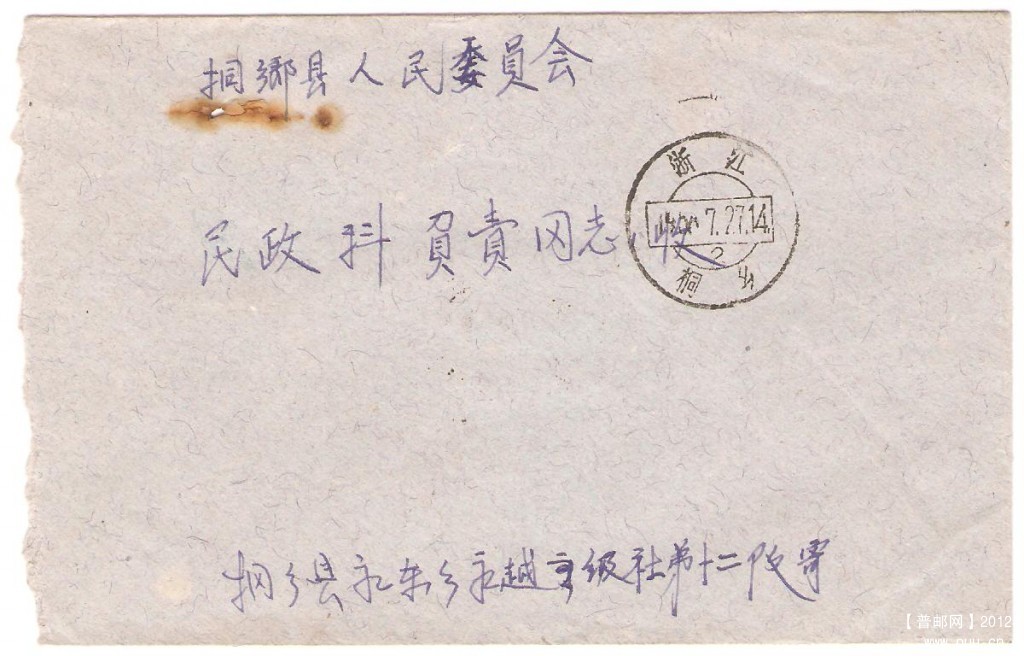 桐鄉县人民委員会
浙江
7.27.14
2
桐乡
民政科負責同志 收
桐乡县永东乡永越高级社第十二队寄
【普邮网】2012